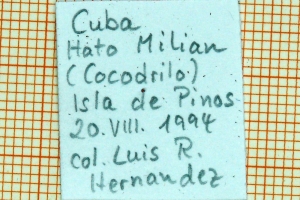 Cuba
Hato Milian
(Cocodrilo)
Isla de Pinos
20.VIII. 1994
col. Luis R.
Hernandez